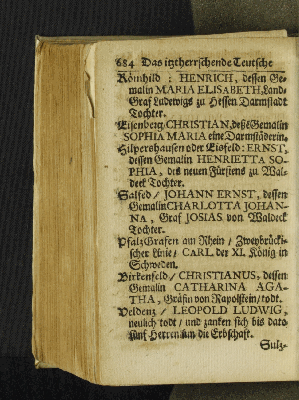 684 Das itztherrschende Teutsche
Römhild : HENRICH, dessen Ge-
malin MARIA ELISABETH, Land-
Graf Ludewigs zu Hessen Darmstadt
Tochter.
Eisenberg/CHRISTIAN, deßē Gemalin
SOPHIA MARIA eine Darmstäderin.
Hilpershausen oder Eisfeld: ERNST,
dessen Gemalin HENRIETTA SO-
PHIA, des neuen Fürstens zu Wal-
deck Tochter.
Salfed / JOHANN ERNST, dessen
Gemalin CHARLOTTA JOHAN-
NA, Graf JOSIAS von Waldeck
Tochter.
PfalzGrafen am Rhein / Zweybrücki-
scher Linie/ CARL der XI. König in
Schweden.
Birkenfeld / CHRISTIANUS, dessen
Gemalin CATHARINA AGA-
THA, Gräfin von Rapolstein/todt.
Veldenz / LEOPOLD LUDWIG,
neulich todt / und zanken sich bis dato
fünf Herren um die Erbschaft.
Sulz-